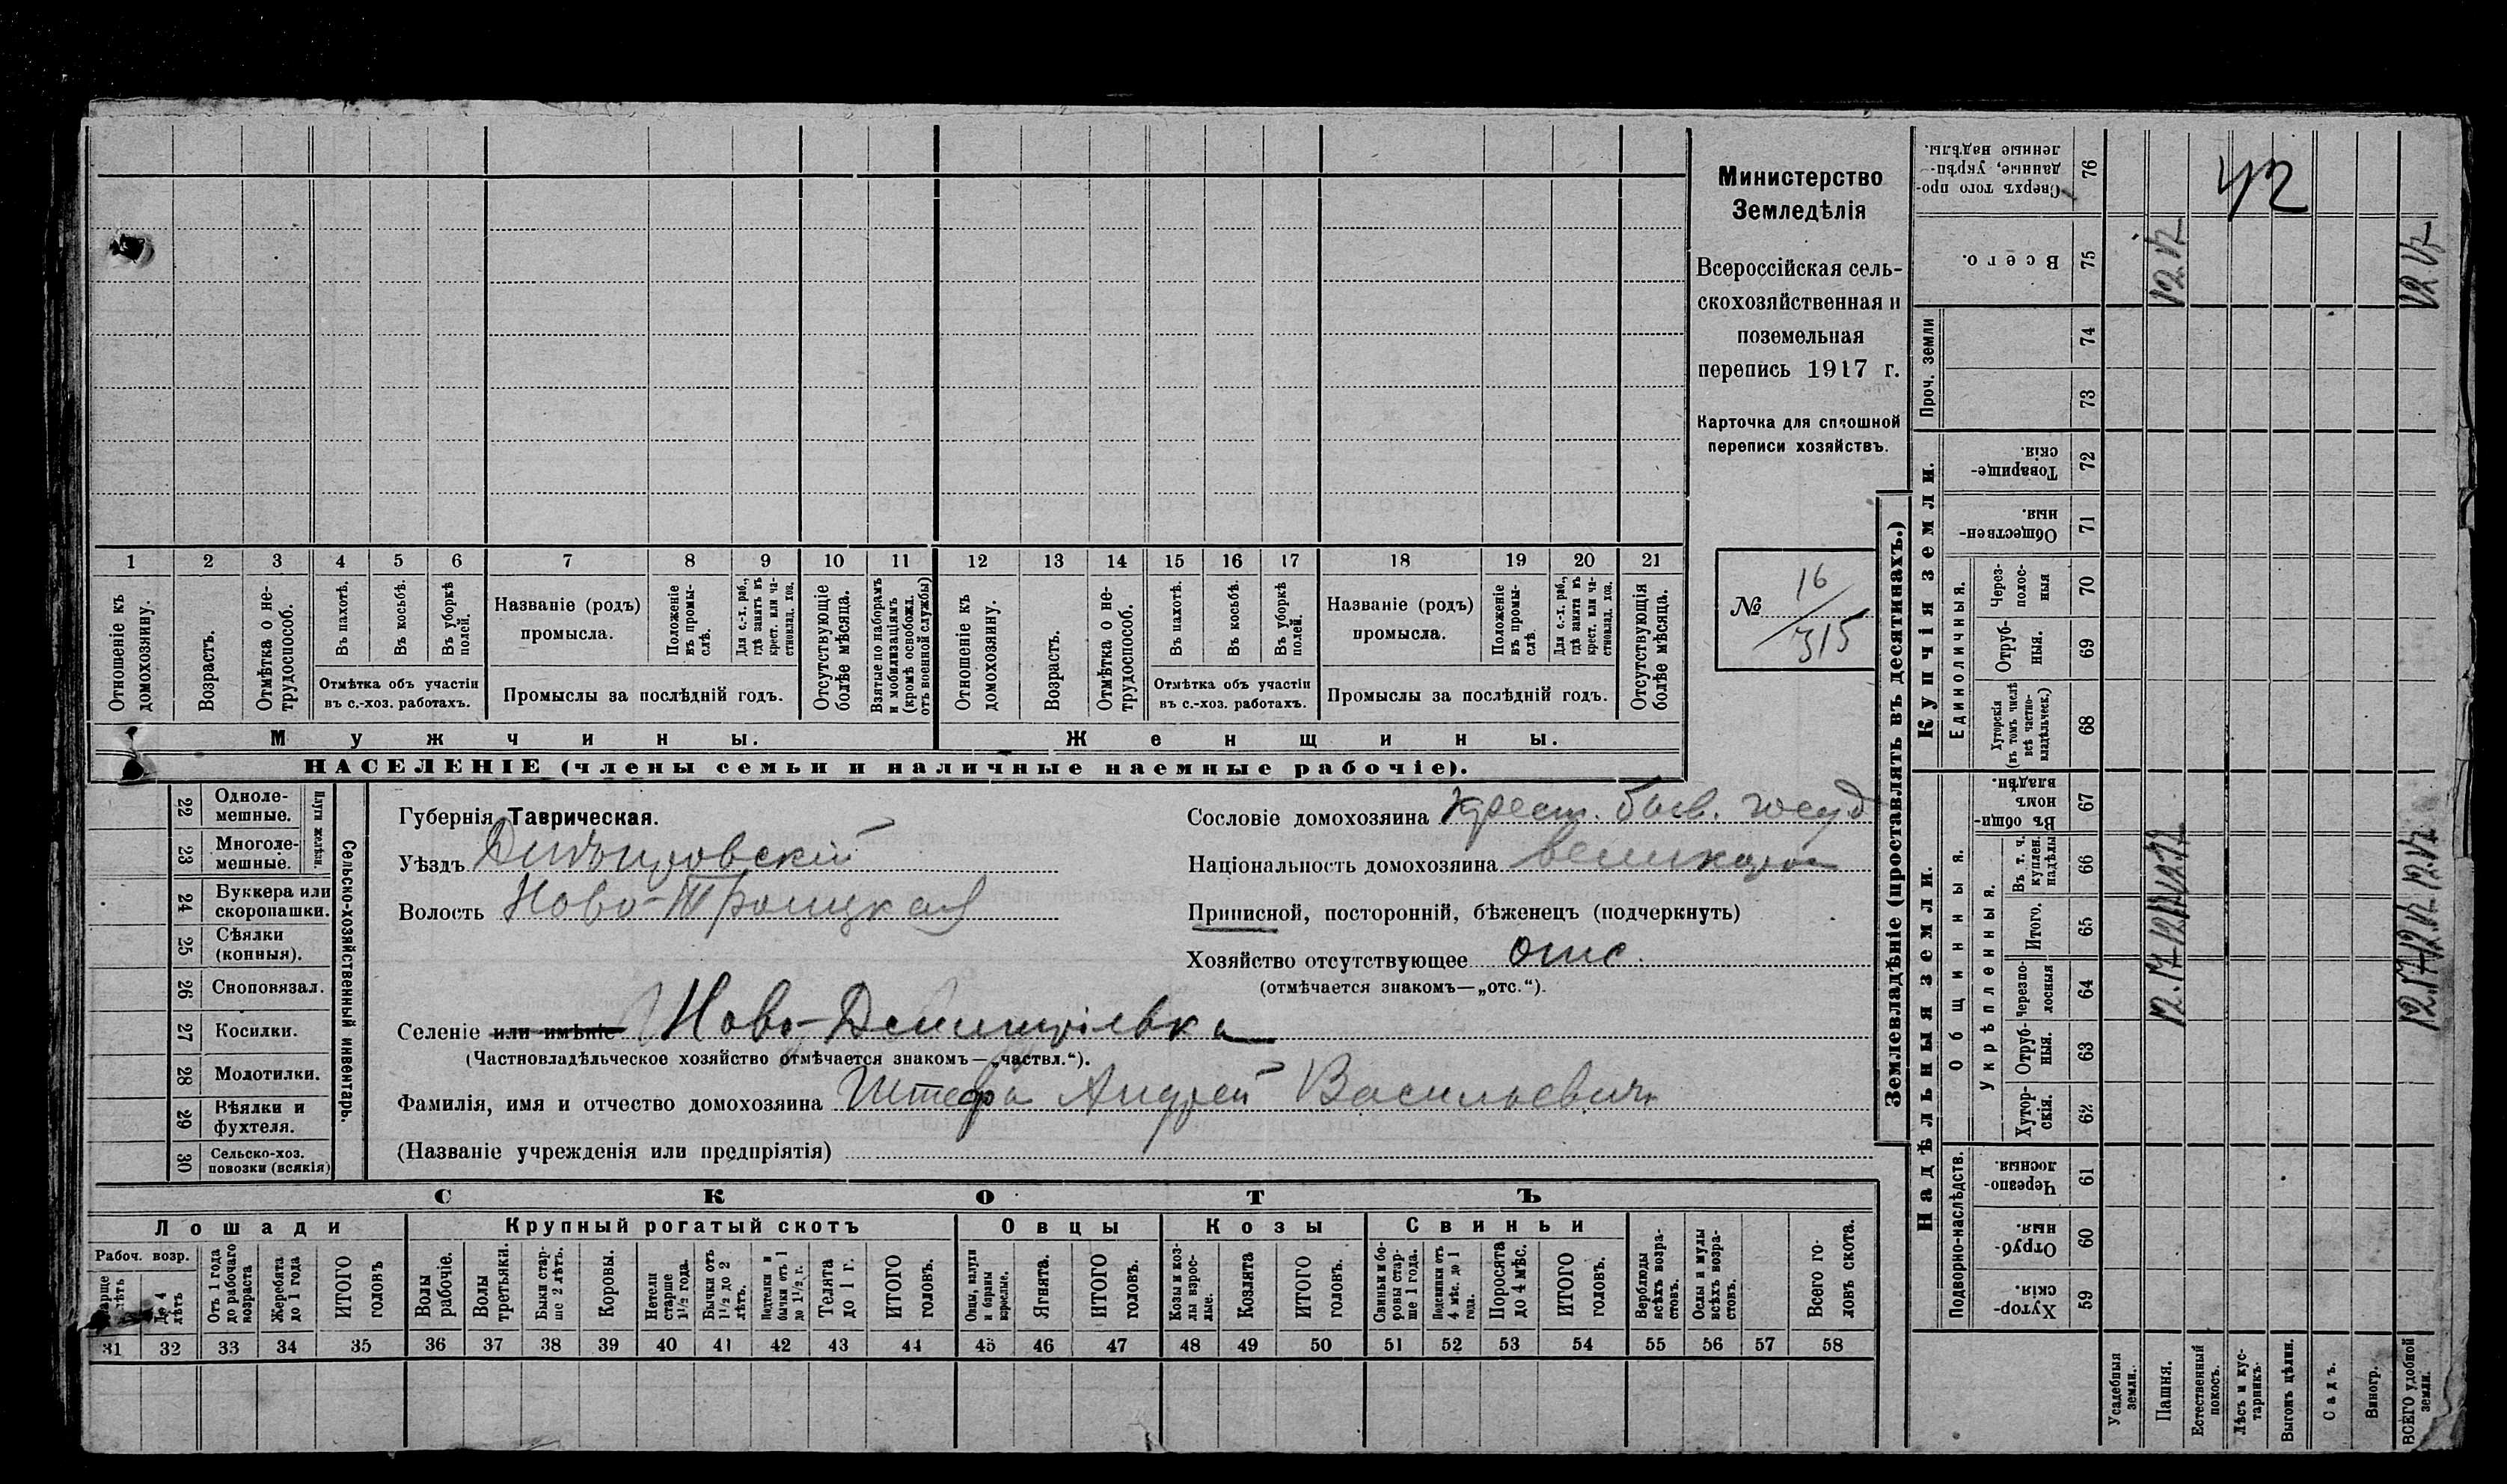 Министерство
Земледѣлія
Всероссійская сель-
скохозяйственная и
поземельная
перепись 1917 г.
Карточка для сплошной
переписи хозяйствъ.
№ 16/315
1 2 3 4 5 6 7 8 9 10 11 12 13 14 15 16 17 18 19 20 21
Отношеніе къ домохозяину.
Возрастъ.
Отмѣтка о не-трудоспособ.
Въ пахотѣ.
Въ косьбѣ.
Въ уборкѣ полей.
Отмѣтка объ участіи
въ с.-хоз. работахъ.
Названіе (родъ)
промысла.
Положеніе въ промы-слѣ.
Для с.-х. раб., гдѣ занятъ въ крест. или ча-стновлад. хоз.
Промыслы за послѣдній годъ.
Отсутствующіе болѣе мѣсяца.
Взятые по наборамъ и мобилизаціямъ (кромѣ освобожд. отъ военной службы)
Отношеніе къ домохозяину.
Возрастъ.
Отмѣтка о не-трудоспособ.
Въ пахотѣ.
Въ косьбѣ.
Въ уборкѣ полей.
Отмѣтка объ участіи
въ с.-хоз. работахъ.
Названіе (родъ)
промысла.
Положеніе въ промы-слѣ.
Для с.-х. раб., гдѣ занята въ крест. или ча-стновлад. хоз.
Промыслы за послѣдній годъ.
Отсутствующія болѣе мѣсяца.
Мужчины.
Женщины.
НАСЕЛЕНІЕ (члены семьи и наличные наемные рабочіе).
22 Одноле-мешные.
23 Многоле-мешные.
Плуги желѣзн.
24 Буккера или скоропашки.
25 Сѣялки (конныя).
26 Сноповязал.
27 Косилки.
28 Молотилки.
29 Вѣялки и фухтеля.
30 Сельско-хоз. повозки (всякія)
Сельско-хозяйственный инвентарь.
Губернія Таврическая.
Уѣздъ Днѣпровскій
Волость Ново-Троицкая
Сословіе домохозяина крест. бывв. госуд
Національность домохозяина великорос
Приписной, посторонній, бѣженецъ (подчеркнуть)
Хозяйство отсутствующее отс.
(отмѣчается знакомъ—„отс.“).
Селеніе или имѣніе Ново-Дмитріевка
(Частновладѣльческое хозяйство отмѣчается знакомъ—„частвл.“).
Фамилія, имя и отчество домохозяина Штефа Андрей Васильевич
(Названіе учрежденія или предпріятія)
СКОТЪ
Лошади
Крупный рогатый скотъ
Овцы
Козы
Свиньи
Рабоч. возр.
До 4 лѣтъ
Отъ 1 года до рабочаго возраста
Жеребята до 1 года
ИТОГО головъ
Волы рабочіе.
Волы третьяки.
Быки стар-ше 2 лѣтъ.
Коровы.
Нетели старше 1½ года.
Бычки отъ 1½ до 2 лѣтъ.
Подтелки и бычки отъ 1 до 1½ г.
Телята до 1 г.
ИТОГО головъ.
Овцы, валухи и бараны взрослые.
Ягнята.
ИТОГО головъ.
Козы и коз-лы взрос-лые.
Козлята
ИТОГО головъ.
Свиньи и бо-ровы стар-ше 1 года.
Подсвинки отъ 4 мѣс. до 1 года.
Поросята до 4 мѣс.
ИТОГО головъ.
Верблюды всѣхъ возра-стовъ.
Ослы и мулы всѣхъ возра-стовъ.
Всего го-ловъ скота.
31 32 33 34 35 36 37 38 39 40 41 42 43 44 45 46 47 48 49 50 51 52 53 54 55 56 57 58
Землевладѣніе (проставлять въ десятинахъ.)
Надѣльныя земли.
Купчія земли.
Проч. земли
Подворно-наслѣдств.
Общинныя.
Укрѣпленныя.
Единоличныя.
Сверхъ того про-данные, укрѣп-ленные надѣлы. 76
42
Всего. 75
74
73
Товарище-скія. 72
Обществен-ныя. 71
Через-полос-ныя 70
Отруб-ныя. 69
Хуторскія (въ томъ числѣ всѣ частно-владѣльческ.) 68
Въ общи-номъ владѣн. 67
Въ т. ч. куплен. надѣлы 66
Итого. 65
Черезпо-лосныя 64
Отруб-ныя. 63
Хутор-скія. 62
Черезпо-лосныя. 61
Отруб-ныя. 60
Хутор-скія. 59
Усадебныя земли.
Пашня.
Естественный покосъ.
Лѣсъ и кус-тарникъ.
Выгонъ цѣлин.
Садъ.
Виногр.
ВСЕГО удобной земли.